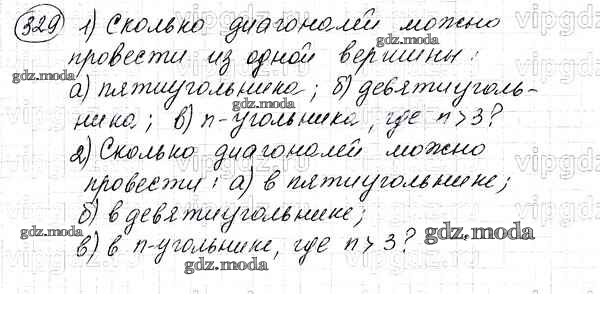 329 1) Сколько диагоналей можно
провести из одной вершины:
а) пятиугольника; б) девятиуголь-
ника; в) n-угольника, где n > 3?
2) Сколько диагоналей можно
провести: а) в пятиугольнике;
б) в девятиугольнике;
в) в n-угольнике, где n > 3?
gdz.moda
gdz.moda
gdz.moda
gdz.moda
gdz.moda
gdz.moda
gdz.moda
vipgdz
vipgdz
vipgdz
vipgdz